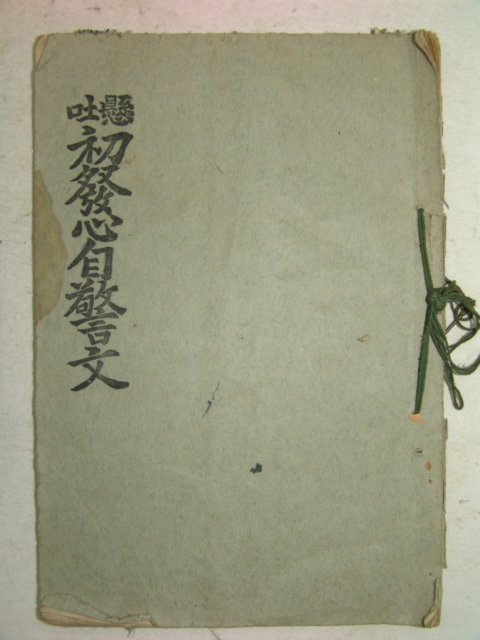 懸吐
初發心自警文